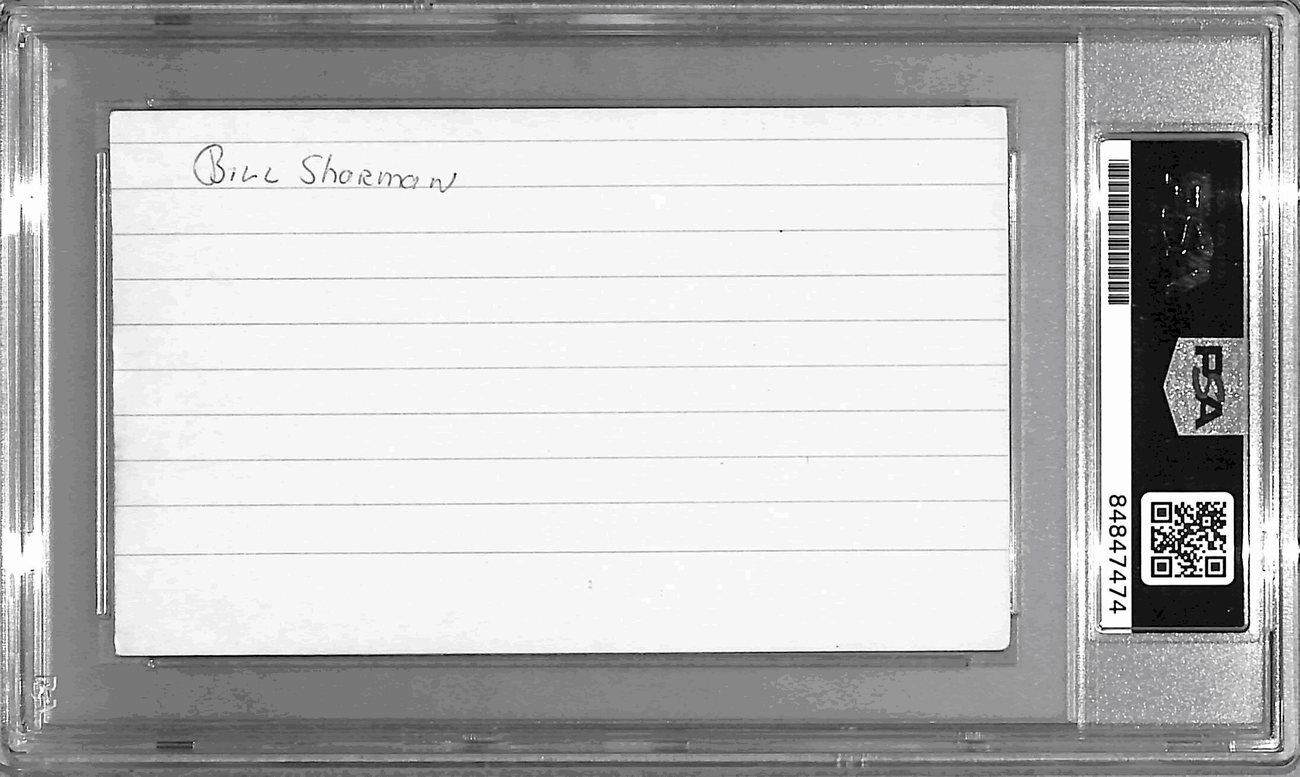 Bill Sharman
PSA
84847474